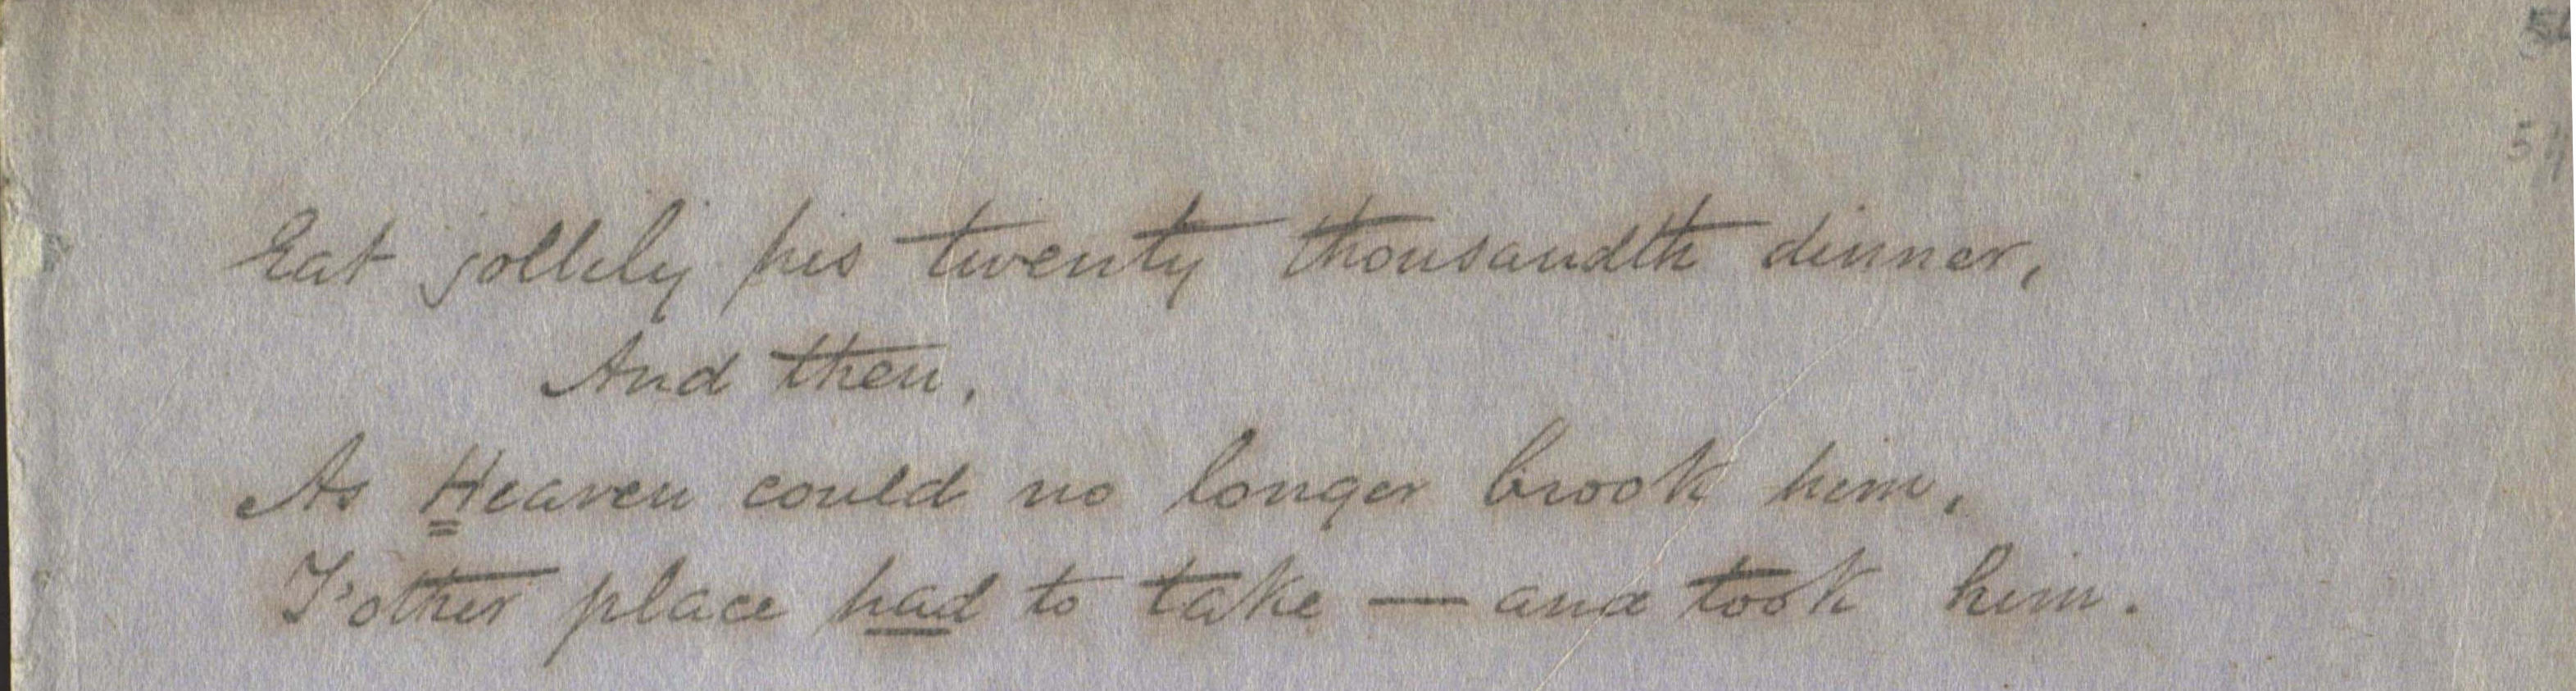 Eat jollily his twenty thousandth dinner,
And then,
As Heaven could no longer brook him,
T'other place had to take — and took him.